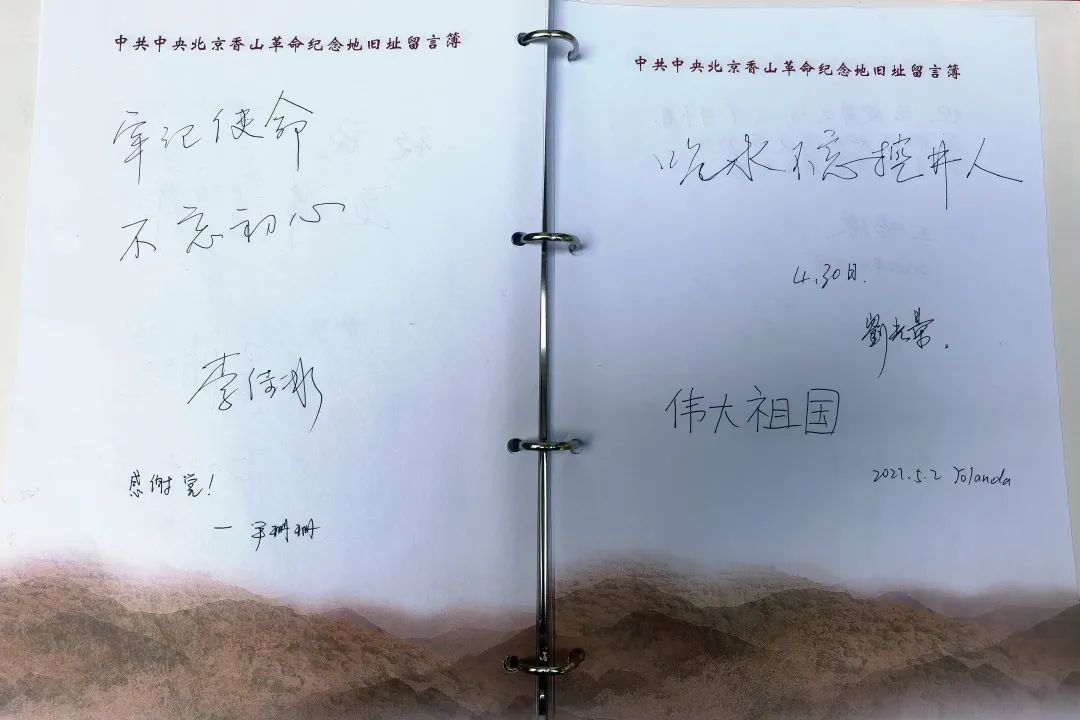 中共中央北京香山革命纪念地旧址留言簿
牢记使命
不忘初心
李佳冰
感谢党!
一 罗珊珊
中共中央北京香山革命纪念地旧址留言簿
吃水不忘挖井人
4.30日.
劉光荣.
伟大祖国
2021.5.2 Yolanda